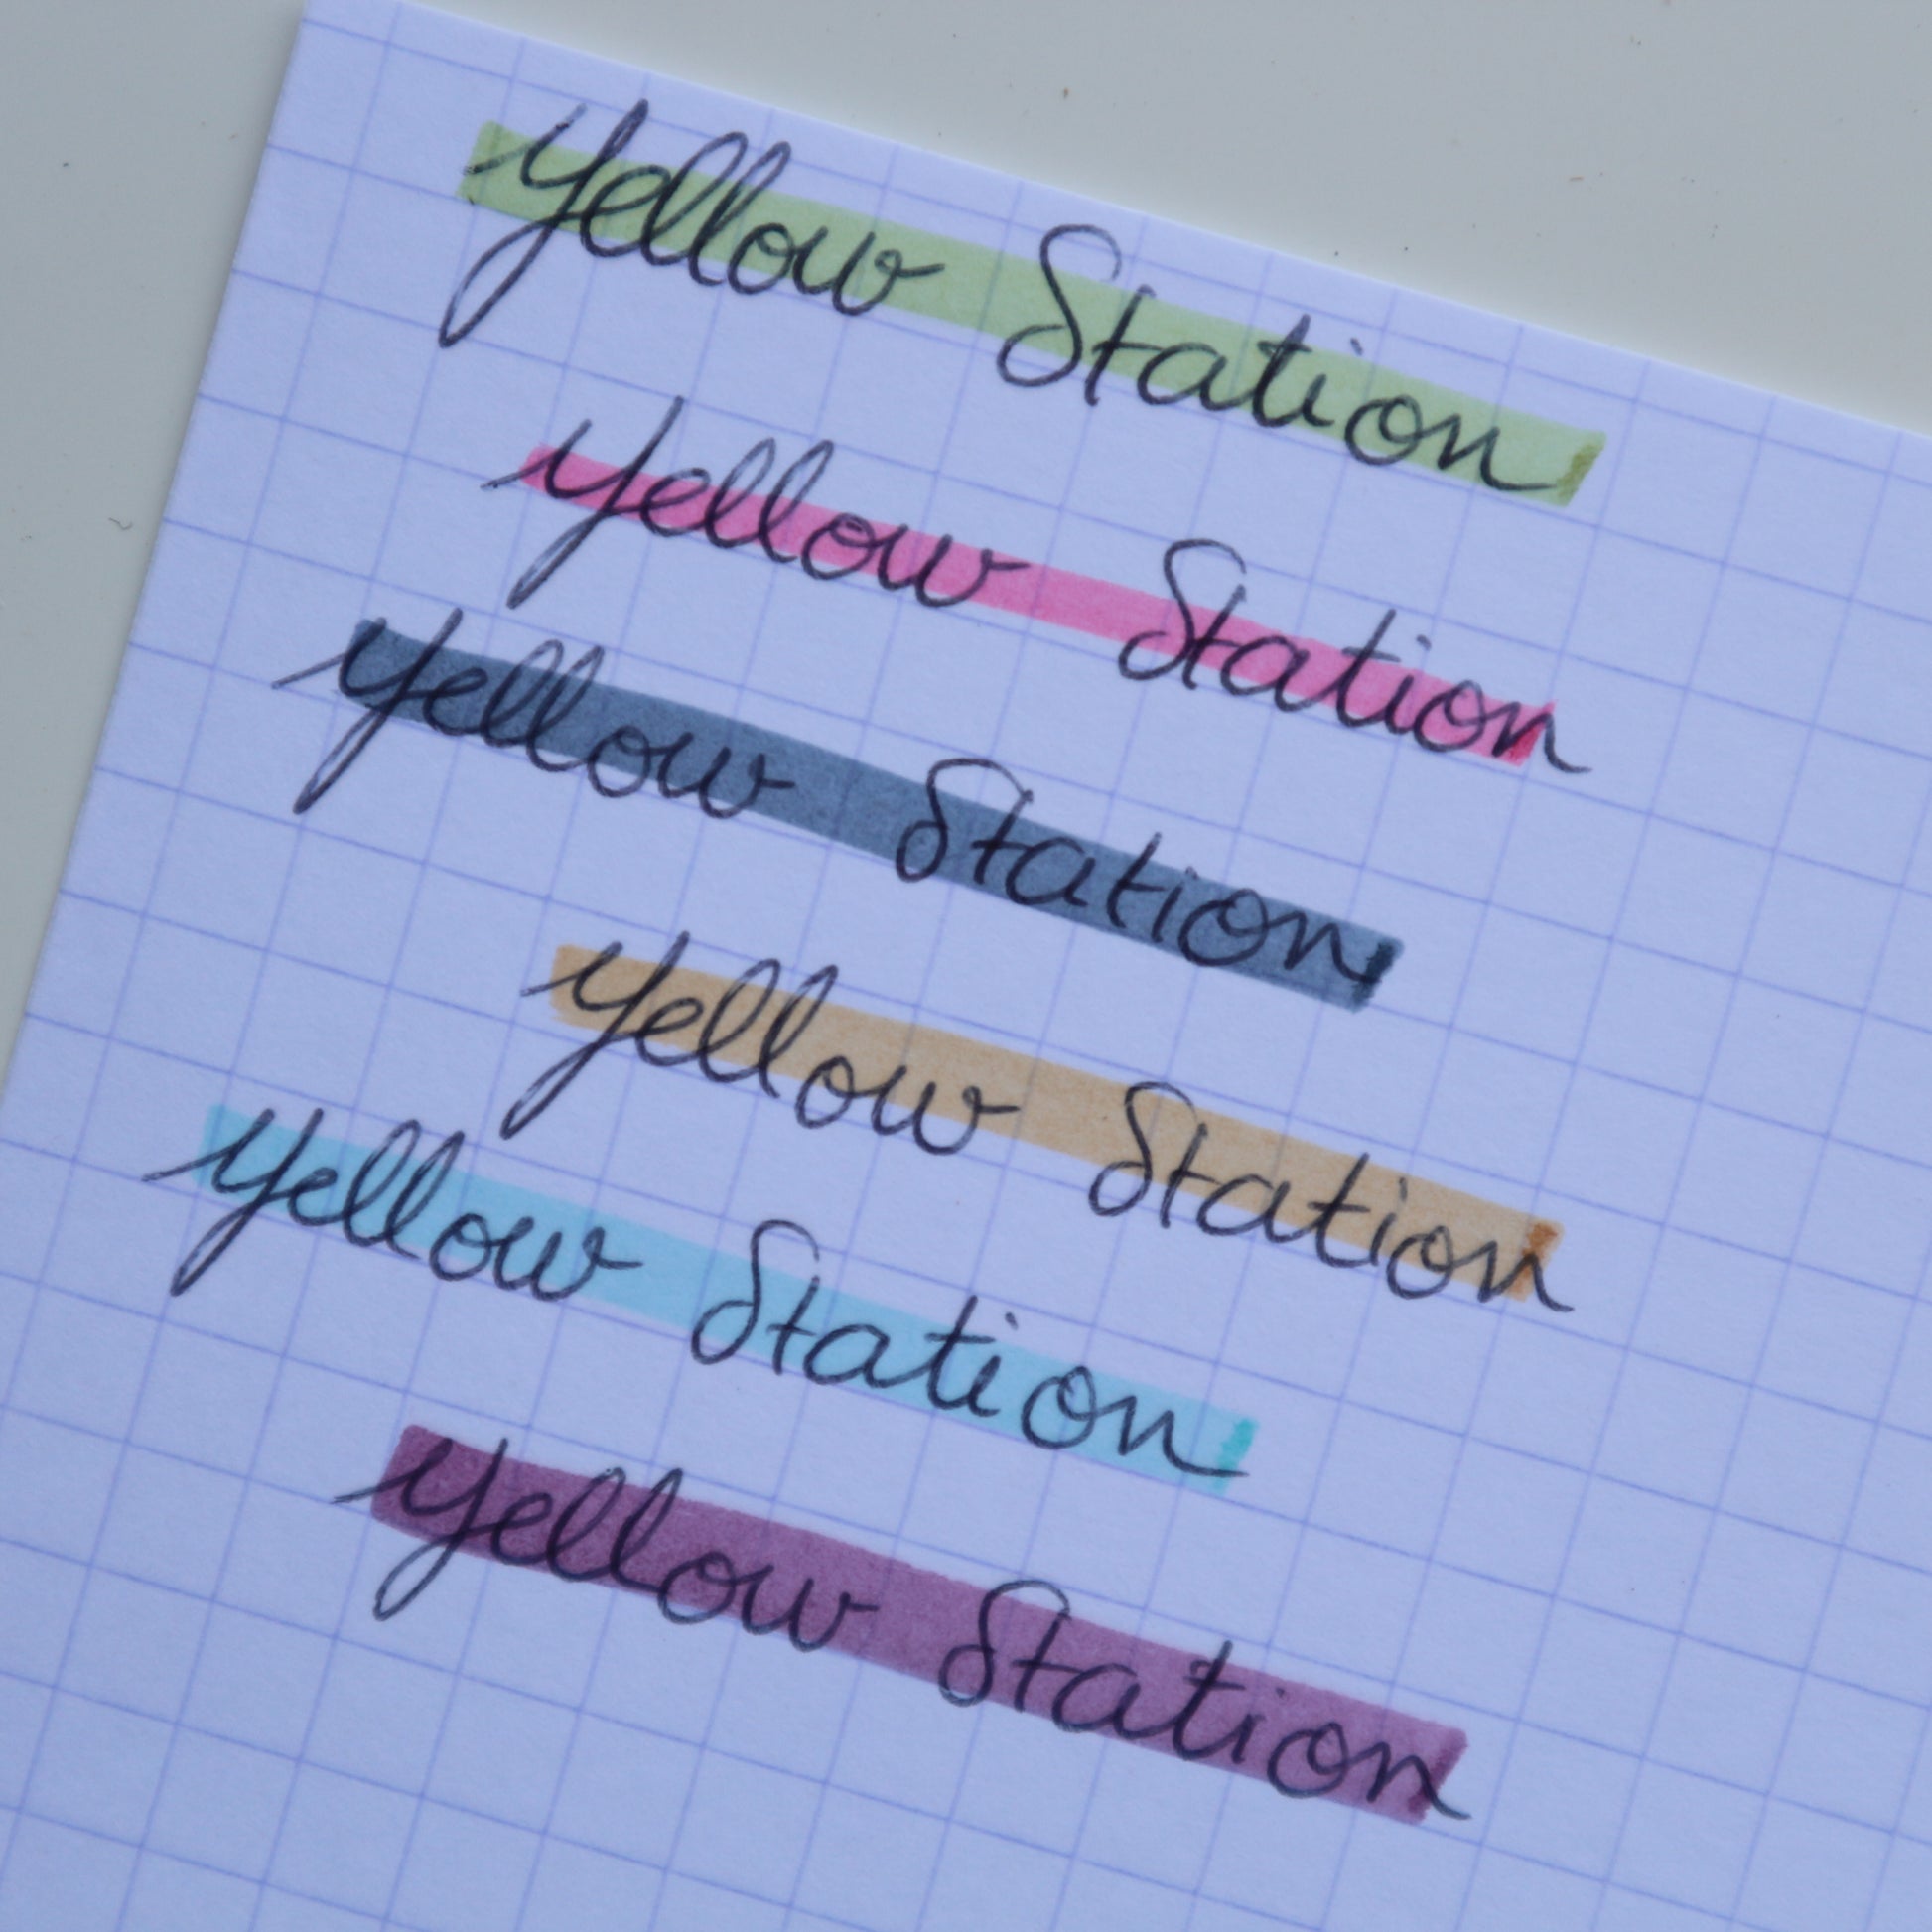 Yellow Station
Yellow Station
Yellow Station
Yellow Station
Yellow Station
Yellow Station